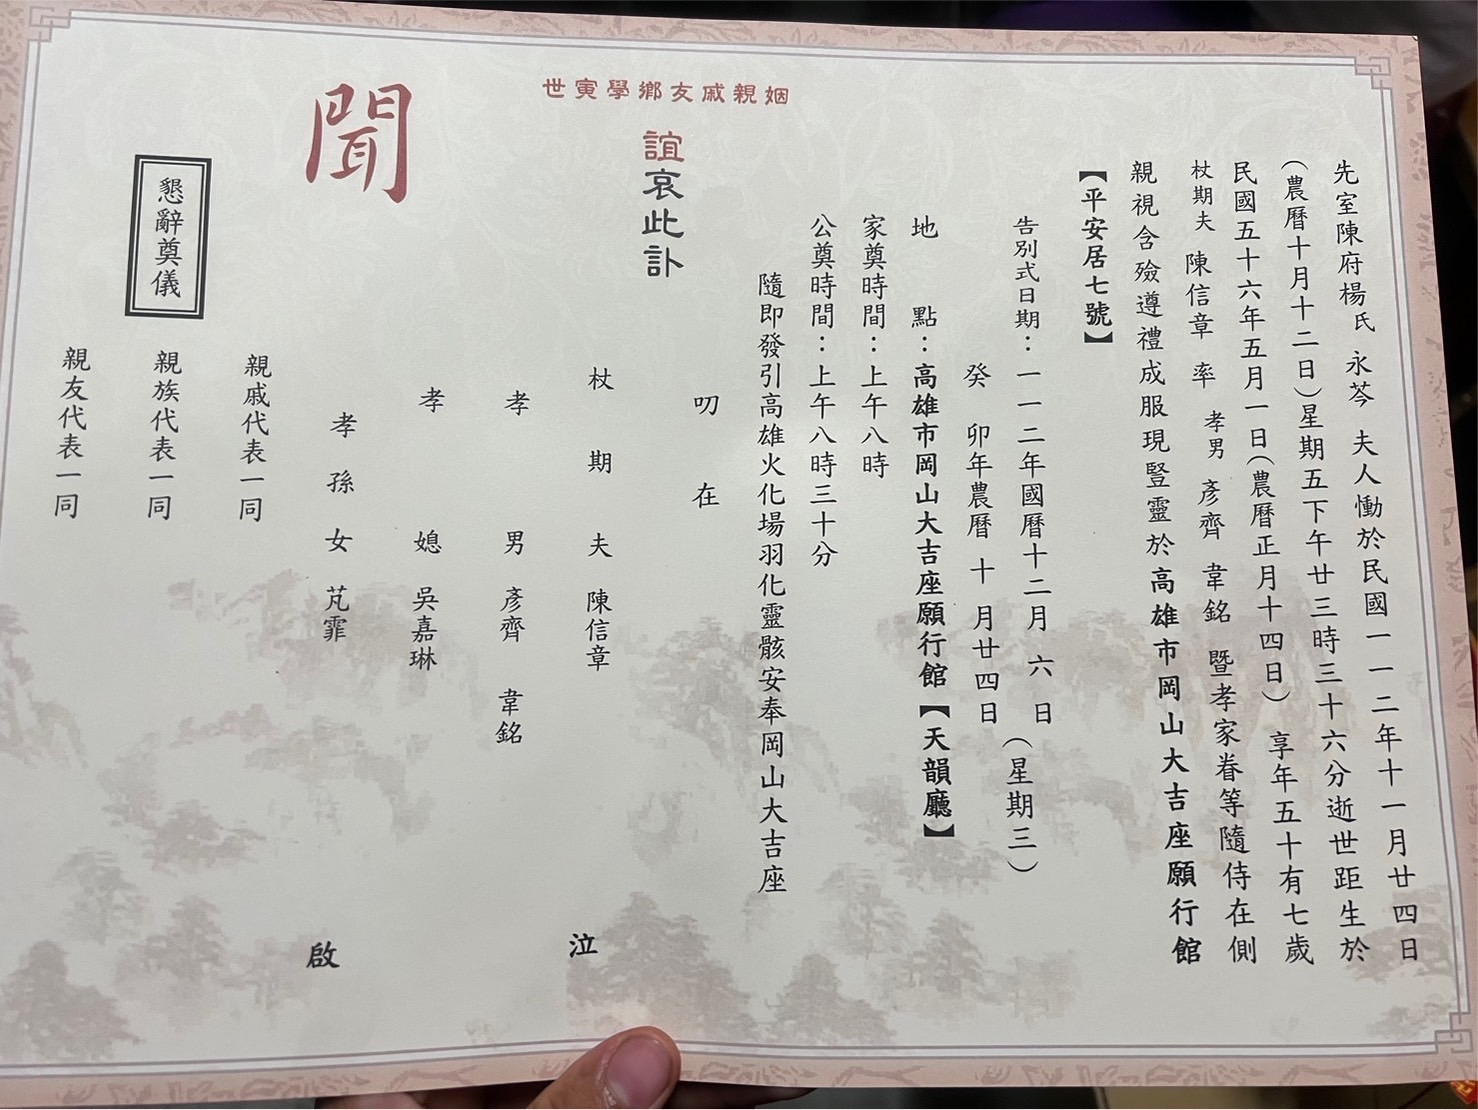 先室陳府楊氏 永芩 夫人慟於民國一一二年十一月廿四日
(農曆十月十二日)星期五下午廿三時三十六分逝世距生於
民國五十六年五月一日(農曆正月十四日) 享年五十有七歲
杖期夫 陳信章 率 孝男 彥齊 韋銘 暨孝家眷等隨侍在側
親視含殮遵禮成服現豎靈於高雄市岡山大吉座願行館
【平安居七號】
告別式日期：一一二年國曆十二月 六 日(星期三)
癸 卯年農曆 十 月廿四日
地 點：高雄市岡山大吉座願行館【天韻廳】
家奠時間：上午八時
公奠時間：上午八時三十分
隨即發引高雄火化場羽化靈骸安奉岡山大吉座
叨 在
姻親戚友鄉學寅世
誼哀此訃
聞
杖 期 夫 陳信章
孝 男 彥齊 韋銘
孝 媳 吳嘉琳
孝 孫 女 芃霏
泣
啟
親戚代表一同
親族代表一同
親友代表一同
懇辭奠儀